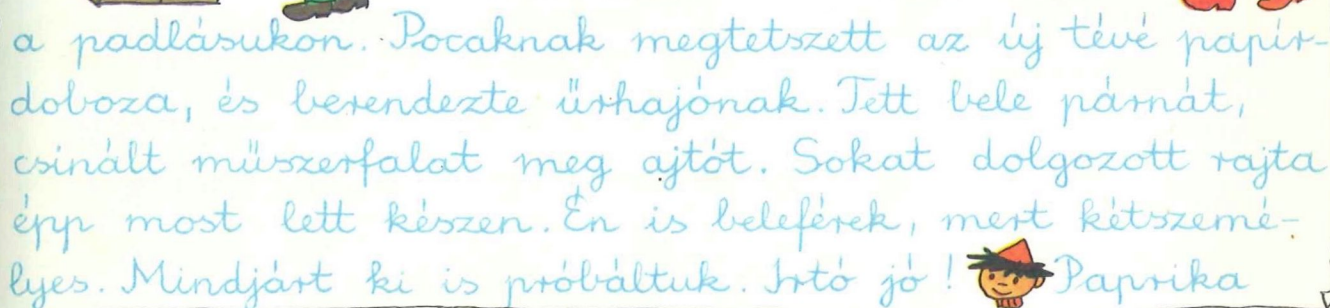 a padlásukon. Pocaknak megtetszett az új tévé papír-
doboza, és berendezte űrhajónak. Tett bele párnát,
csinált műszerfalat meg ajtót. Sokat dolgozott rajta
épp most lett készen. Én is beleférek, mert kétszemé-
lyes. Mindjárt ki is próbáltuk. Irtó jó! Paprika